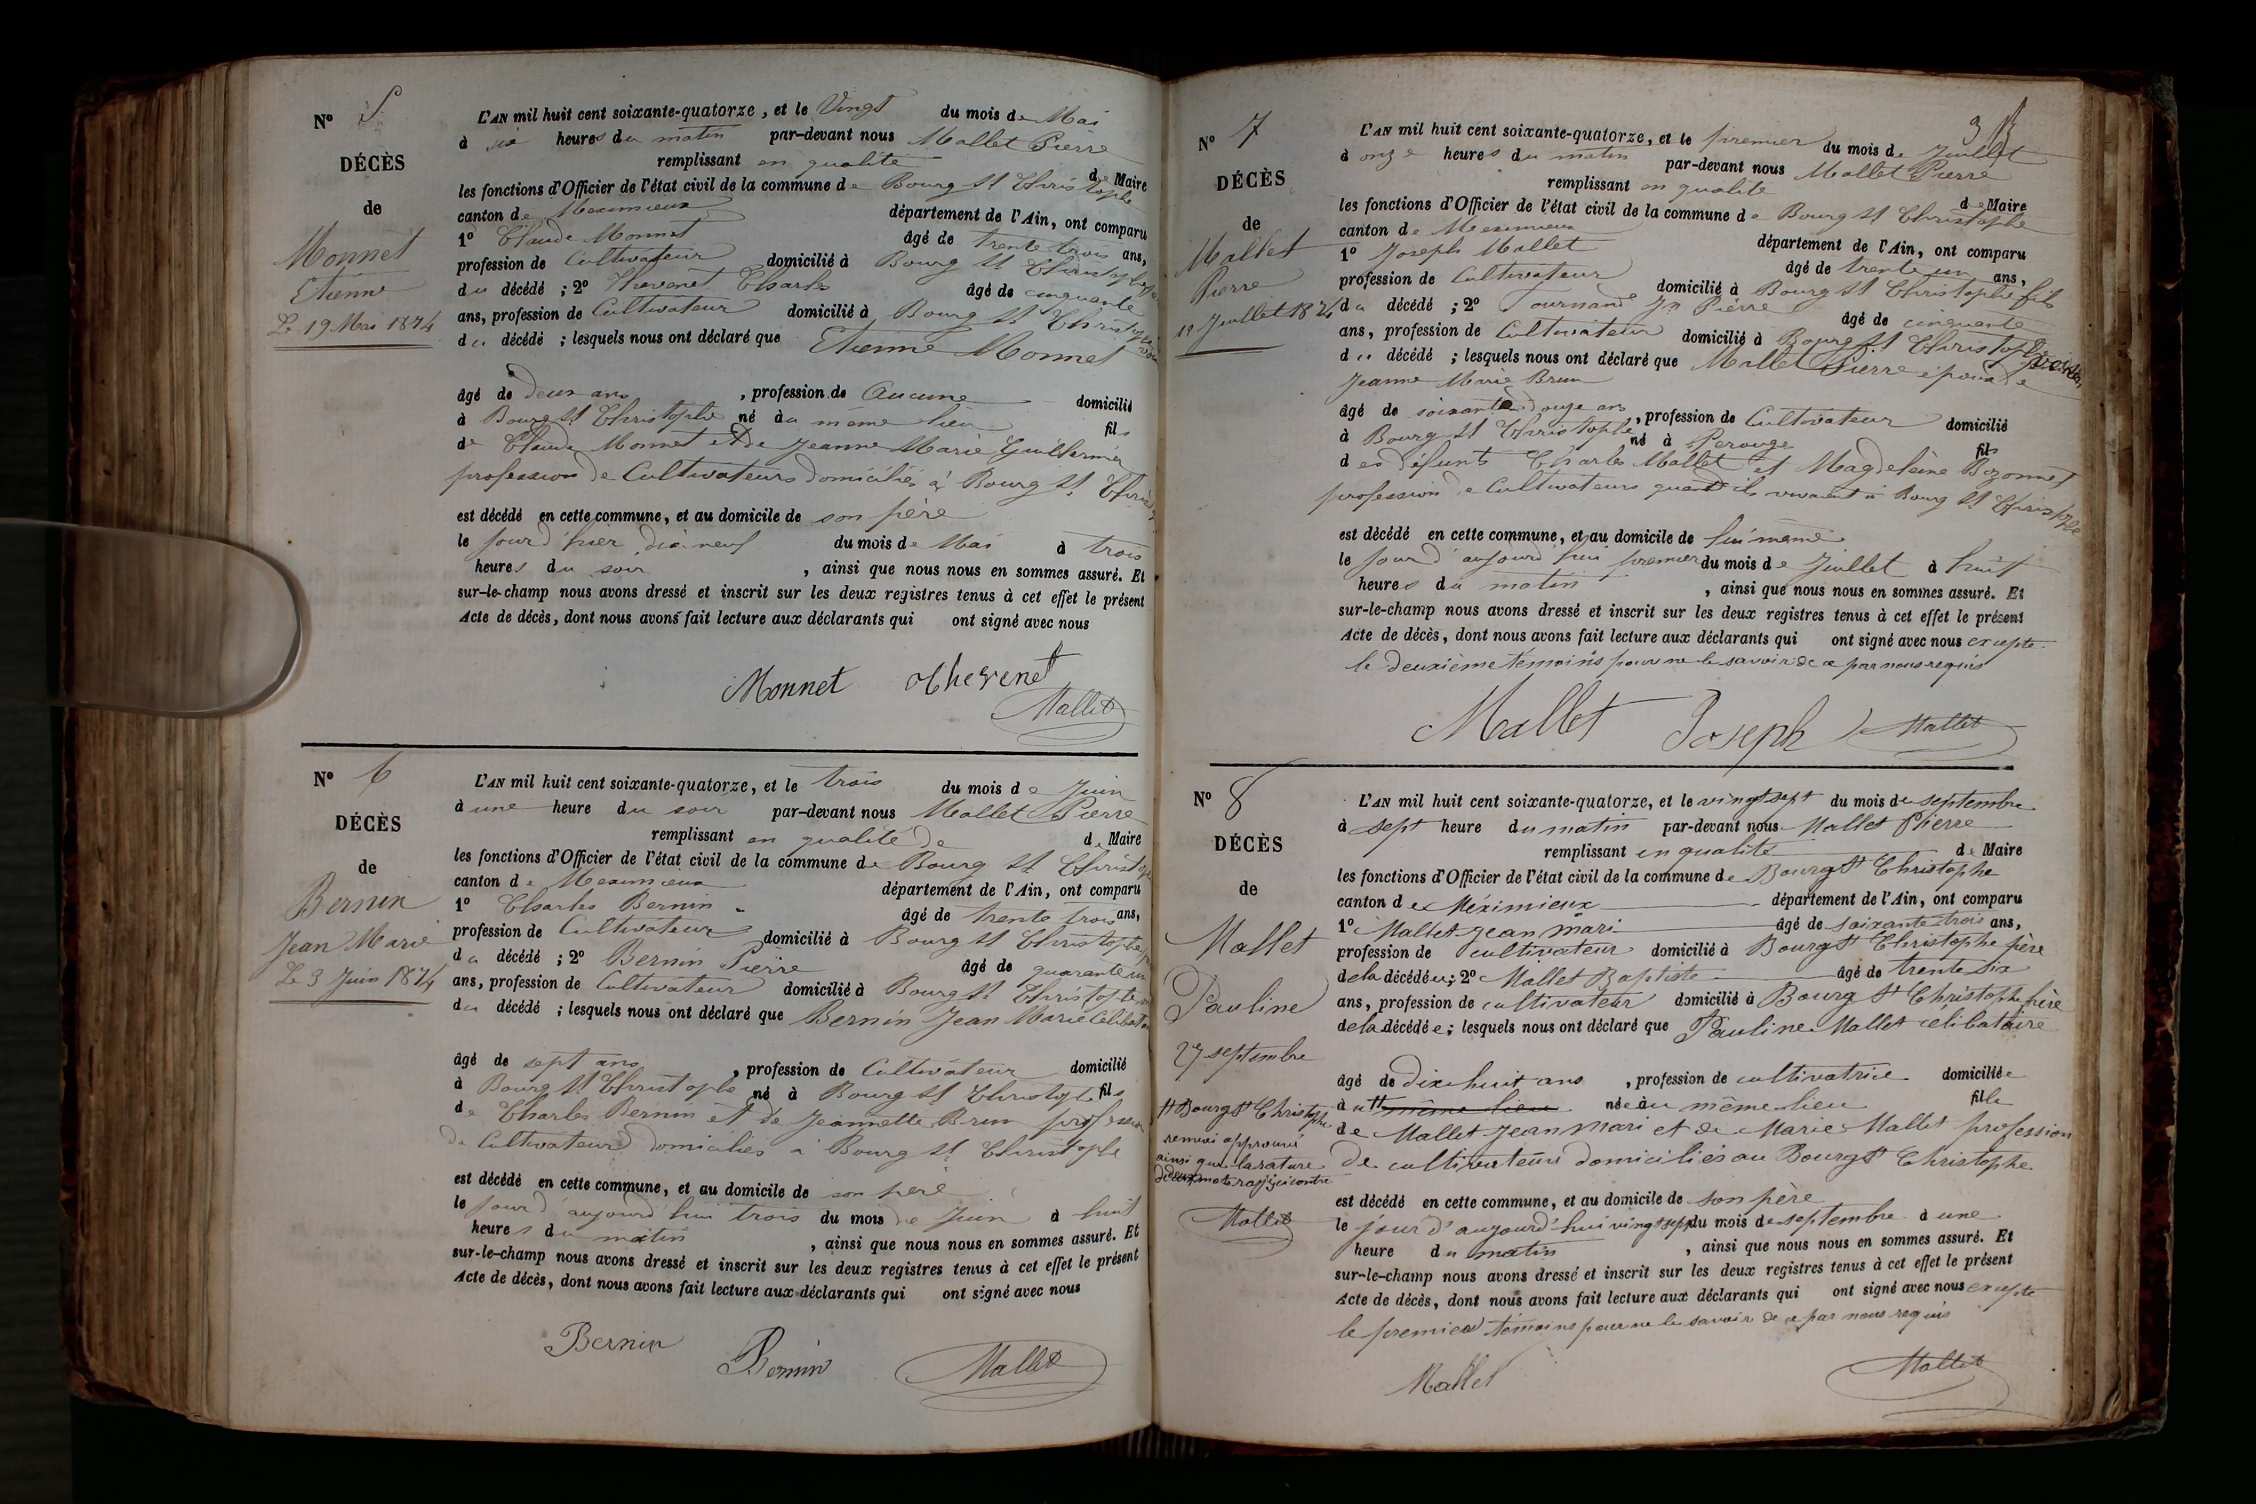 N° 5
DÉCÈS
de
Monnet
Etienne
Le 19 Mai 1874
L'AN mil huit cent soixante-quatorze, et le Vingt du mois de Mai
à six heures du matin par-devant nous Mallet Pierre
remplissant en qualité de Maire
les fonctions d'Officier de l'état civil de la commune de Bourg St Christophe
canton de Meximieux département de l'Ain, ont comparu
1° Claude Monnet âgé de trente trois ans,
profession de Cultivateur domicilié à Bourg St Christophe
du décédé ; 2° Thevenet Charles âgé de cinquante
ans, profession de Cultivateur domicilié à Bourg St Christophe
du décédé ; lesquels nous ont déclaré que Etienne Monnet
âgé de deux ans, profession de Aucune domicilié
à Bourg St Christophe né au même lieu fils
de Claude Monnet et de Jeanne Marie Guillermin
profession de Cultivateurs domiciliés à Bourg St
est décédé en cette commune, et au domicile de son père
le jour d'hier dix neuf du mois de Mai à trois
heures du soir, ainsi que nous nous en sommes assuré. Et
sur-le-champ nous avons dressé et inscrit sur les deux registres tenus à cet effet le présent
Acte de décès, dont nous avons fait lecture aux déclarants qui ont signé avec nous
Monnet Thevenet
Mallet
N° 6
DÉCÈS
de
Bernin
Jean Marie
Le 3 Juin 1874
L'AN mil huit cent soixante-quatorze, et le trois du mois de Juin
à une heure du soir par-devant nous Mallet Pierre
remplissant en qualité de de Maire
les fonctions d'Officier de l'état civil de la commune de Bourg St Christophe
canton de Meximieux département de l'Ain, ont comparu
1° Charles Bernin âgé de trente trois ans,
profession de Cultivateur domicilié à Bourg St Christophe
du décédé ; 2° Bernin Pierre âgé de quarante un
ans, profession de Cultivateur domicilié à Bourg St Christophe
du décédé ; lesquels nous ont déclaré que Bernin Jean Marie Célibataire
âgé de sept ans, profession de Cultivateur domicilié
à Bourg St Christophe né à Bourg St Christophe fils
de Charles Bernin et de Jeannette Brun profession
de Cultivateurs domiciliés à Bourg St Christophe
est décédé en cette commune, et au domicile de son père
le jour d'aujourd'hui trois du mois de Juin à huit
heures du matin, ainsi que nous nous en sommes assuré. Et
sur-le-champ nous avons dressé et inscrit sur les deux registres tenus à cet effet le présent
Acte de décès, dont nous avons fait lecture aux déclarants qui ont signé avec nous
Bernin Bernin Mallet
N° 7
DÉCÈS
de
Mallet
Pierre
1er Juillet 1874
L'AN mil huit cent soixante-quatorze, et le premier du mois de Juillet
à onze heures du matin par-devant nous Mallet Pierre
remplissant en qualité de Maire
les fonctions d'Officier de l'état civil de la commune de Bourg St Christophe
canton de Meximieux département de l'Ain, ont comparu
1° Joseph Mallet âgé de trente un ans,
profession de Cultivateur domicilié à Bourg St Christophe fils
du décédé ; 2° Tournand Jn Pierre âgé de cinquante
ans, profession de Cultivateur domicilié à Bourg St Christophe
du décédé ; lesquels nous ont déclaré que Mallet Pierre époux de
Jeanne Marie Brun
âgé de soixante douze ans, profession de Cultivateur domicilié
à Bourg St Christophe né à Perouge fils
des défunts Charles Mallet et Magdeleine Bozonnet
profession de Cultivateurs quand ils vivaient à Bourg St Christophe
est décédé en cette commune, et au domicile de lui même
le jour d'aujourd'hui premier du mois de Juillet à huit
heures du matin, ainsi que nous nous en sommes assuré. Et
sur-le-champ nous avons dressé et inscrit sur les deux registres tenus à cet effet le présent
Acte de décès, dont nous avons fait lecture aux déclarants qui ont signé avec nous excepté
le deuxième témoins pour ne le savoir de ce par nous requis
Mallet Joseph Mallet
N° 8
DÉCÈS
de
Mallet
Pauline
27 septembre
tt Bourg St Christophe
renvoi approuvé
ainsi que la rature
de deux mots rayés ci contre
Mallet
L'AN mil huit cent soixante-quatorze, et le vingt sept du mois de septembre
à sept heure du matin par-devant nous Mallet Pierre
remplissant en qualité de Maire
les fonctions d'Officier de l'état civil de la commune de Bourg St Christophe
canton de Méximieux département de l'Ain, ont comparu
1° Mallet Jean Mari âgé de soixante trois ans,
profession de cultivateur domicilié à Bourg St Christophe père
de la décédée ; 2° Mallet Baptiste âgé de trente six
ans, profession de cultivateur domicilié à Bourg St Christophe frère
de la décédée ; lesquels nous ont déclaré que Pauline Mallet célibataire
âgé de dix huit ans, profession de cultivatrice domiciliée
à u tt même lieu née au même lieu fille
de Mallet Jean Mari et de Marie Mallet profession
de cultivateurs domiciliés au Bourg St Christophe
est décédé en cette commune, et au domicile de son père
le jour d'aujourd'hui vingt sept du mois de septembre à une
heure du matin, ainsi que nous nous en sommes assuré. Et
sur-le-champ nous avons dressé et inscrit sur les deux registres tenus à cet effet le présent
Acte de décès, dont nous avons fait lecture aux déclarants qui ont signé avec nous excepté
le premier témoins pour ne le savoir de ce par nous requis
Mallet Mallet